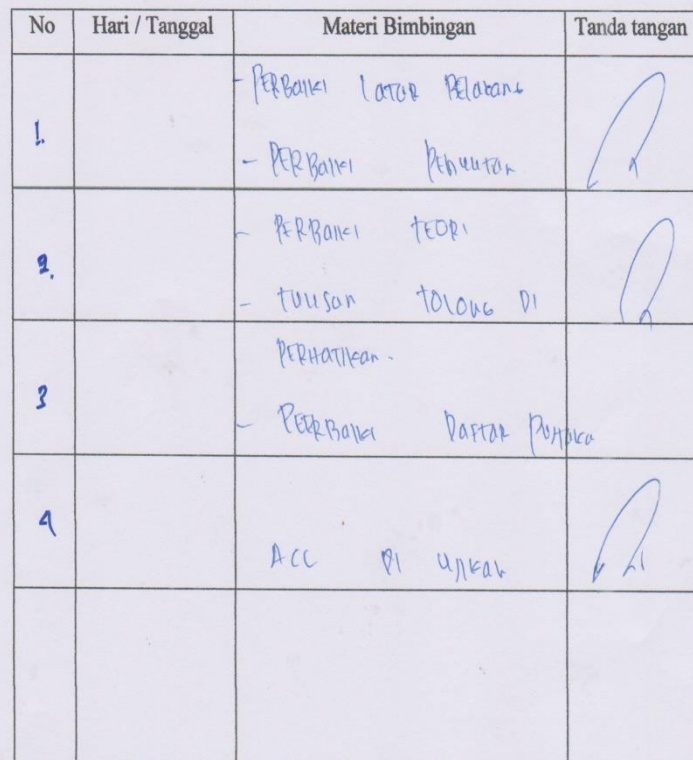 No Hari / Tanggal Materi Bimbingan Tanda tangan
1. - PERBAIKI LATAR BELAKANG
- PERBAIKI PENULISAN
2. - PERBAIKI TEORI
- TULISAN TOLONG DI
PERHATIKAN.
3 - PERRBAIKI DAFTAR PUSTAKA
4 ACC DI UJIKAN